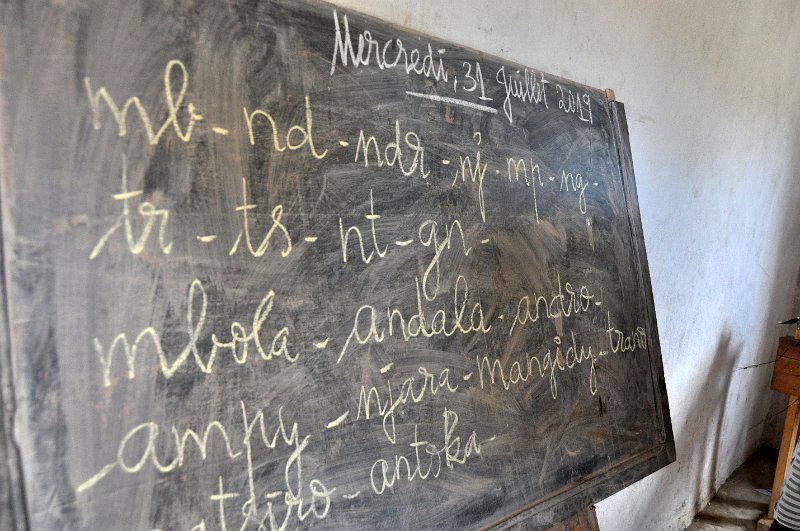 Mercredi, 31 Juillet 2019
mb - nd - ndr - nj - mp - ng -
tr - ts - nt - gn -
mbola - andala - andro -
- ampy - njara - mangidy - trano
antsiro - antska -